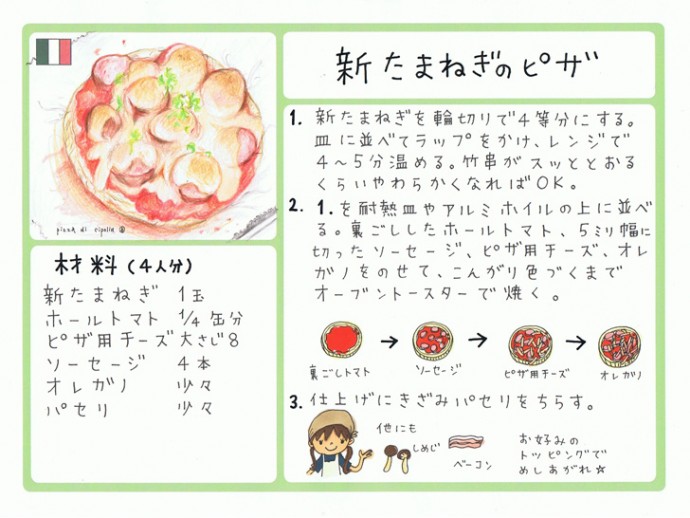 新たまねぎのピザ
pizza di cipolla
材料(4人分)
新たまねぎ 1玉
ホールトマト 1/4缶分
ピザ用チーズ 大さじ8
ソーセージ 4本
オレガノ 少々
パセリ 少々
1. 新たまねぎを輪切りで4等分にする。
皿に並べてラップをかけ、レンジで
4～5分温める。竹串がスッととおる
くらいやわらかくなればOK。
2. 1.を耐熱皿やアルミホイルの上に並べ
る。裏ごししたホールトマト、5ミリ幅に
切ったソーセージ、ピザ用チーズ、オレ
ガノをのせて、こんがり色づくまで
オーブントースターで焼く。
裏ごしトマト
ソーセージ
ピザ用チーズ
オレガノ
3. 仕上げにきざみパセリをちらす。
他にも
しめじ
ベーコン
お好みの
トッピングで
めしあがれ☆